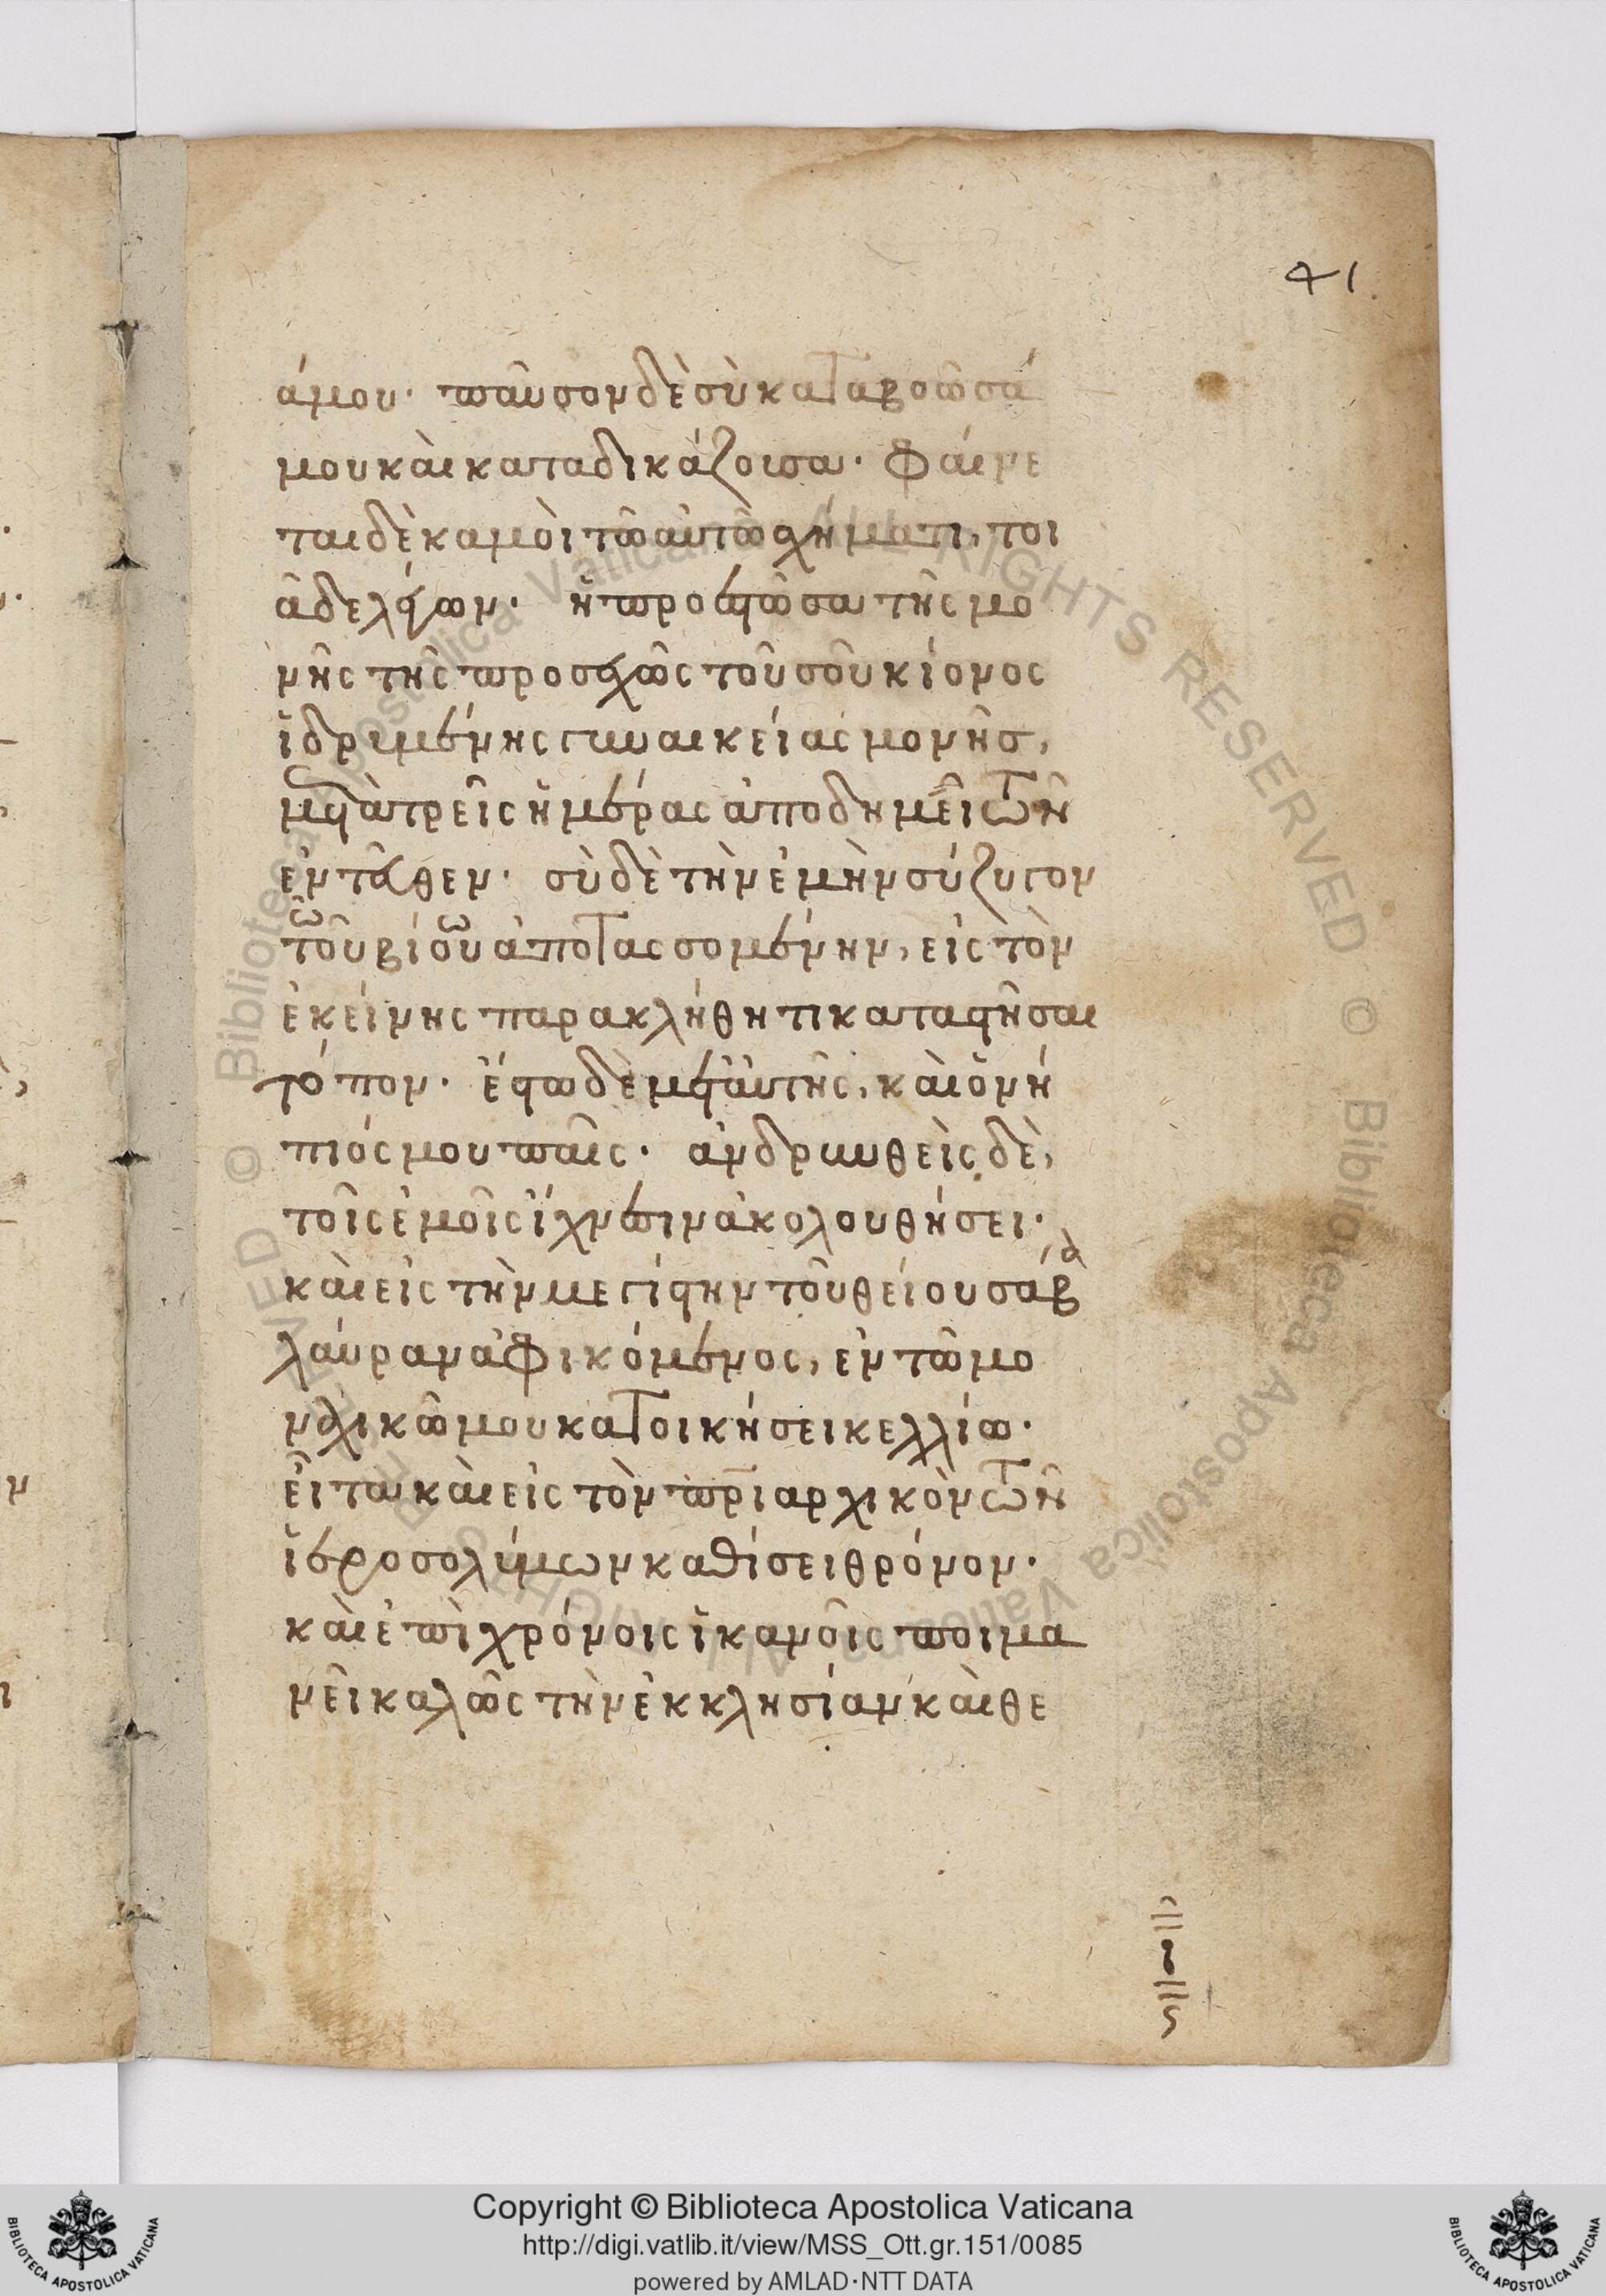 41
άμου· παῦσον δὲ σὺ καταβοῶσά
μου καὶ καταδικάζουσα· φαίνε
ται δὲ κἀμοὶ τῶ αὐτῶ σχήματι, τοι
ἀδελφῶν· ἡ προεστῶσα τῆς μο
νῆς τῆς προσεχῶς τοῦ σοῦ κίονος
ἱδρυμένης γυναικείας μονῆς,
μετὰ τρεῖς ἡμέρας ἀποδημεῖ τῶν
ἐνταῦθεν· σὺ δὲ τὴν ἐμὴν σύζυγον
τοῦ βίου ἀποτασσομένην, εἰς τὸν
ἐκείνης παρακλήθητι καταστῆσαι
τόπον· ἔστω δὲ μετ' αὐτῆς, καὶ ὁ νή
πιός μου παῖς· ἀνδρυνθεὶς δὲ,
τοῖς ἐμοῖς ἴχνεσιν ἀκολουθήσει·
καὶ εἰς τὴν μεγίστην τοῦ θείου σάβα
λαύραν ἀφικόμενος, ἐν τῶ μο
ναχικῶ μου κατοικήσει κελλίω·
εἶτα καὶ εἰς τὸν πριαρχικὸν τῶν
ἱεροσολύμων καθίσει θρόνον·
καὶ ἐπὶ χρόνοις ἱκανοῖς ποιμα
νεῖ καλῶς τὴν ἐκκλησίαν καὶ θε
Copyright © Biblioteca Apostolica Vaticana
http://digi.vatlib.it/view/MSS_Ott.gr.151/0085
powered by AMLAD·NTT DATA